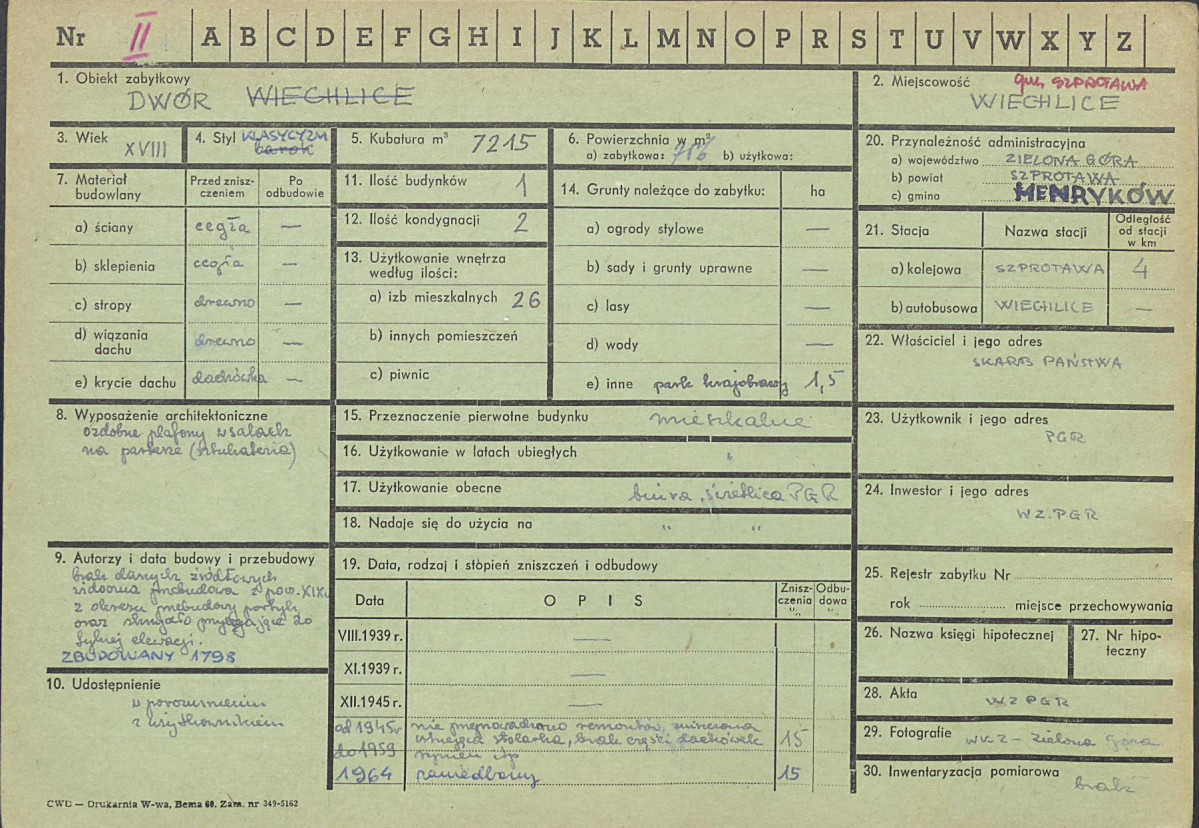 Nr II A B C D E F G H I J K L M N O P R S T U V W X Y Z
1. Obiekt zabytkowy
DWÓR WIECHLICE
2. Miejscowość gm. SZPROTAWA
WIECHLICE
3. Wiek
XVIII
4. Styl KLASYCYZM
barok
5. Kubatura m³ 7215
6. Powierzchnia w m²
a) zabytkowa: b) użytkowa:
20. Przynależność administracyjna
a) województwo ZIELONA GÓRA
b) powiat SZPROTAWA
c) gmina HENRYKÓW
7. Materiał budowlany
Przed znisz-
czeniem
Po
odbudowie
a) ściany cegła —
b) sklepienia cegła —
c) stropy drewno —
d) wiązania
dachu drewno —
e) krycie dachu dachówka —
11. Ilość budynków 1
12. Ilość kondygnacji 2
13. Użytkowanie wnętrza
według ilości:
a) izb mieszkalnych 26
b) innych pomieszczeń
c) piwnic
14. Grunty należące do zabytku: ha
a) ogrody stylowe —
b) sady i grunty uprawne —
c) lasy —
d) wody —
e) inne park krajobrazowy 1,5
21. Stacja Nazwa stacji
Odległość
od stacji
w km
a) kolejowa SZPROTAWA 4
b) autobusowa WIECHLICE —
22. Właściciel i jego adres
SKARB PAŃSTWA
8. Wyposażenie architektoniczne
ozdobne plafony w salach
na parterze (sztukateria)
15. Przeznaczenie pierwotne budynku mieszkalne
16. Użytkowanie w latach ubiegłych "
17. Użytkowanie obecne biura, świetlica PGR
18. Nadaje się do użycia na " "
23. Użytkownik i jego adres
PGR
24. Inwestor i jego adres
WZ.PGR
9. Autorzy i data budowy i przebudowy
brak danych źródłowych
widoczna przebudowa z pow. XIXw
z okresu przebudowy portyk
oraz przylegające do
tylnej elewacji.
ZBUDOWANY 1798
10. Udostępnienie
w porozumieniu
z użytkownikiem
19. Data, rodzaj i stopień zniszczeń i odbudowy
Data OPIS
Znisz-
czenia
%
Odbu-
dowa
%
VIII.1939 r. —
XI.1939 r. —
XII.1945 r. —
od 1945r nie przeprowadzono remontów, zniszczona
istniejąca stolarka, brak części dachówek 15
do 1959 rynien itp
1964 zaniedbany 15
25. Rejestr zabytku Nr
rok miejsce przechowywania
26. Nazwa księgi hipotecznej
27. Nr hipo-
teczny
28. Akta WZ PGR
29. Fotografie WKZ - Zielona Góra
30. Inwentaryzacja pomiarowa
brak
CWD — Drukarnia W-wa, Bema 60. Zam. nr 349-5162